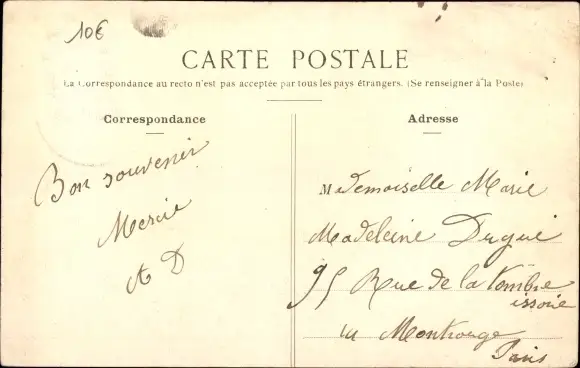 10€
CARTE POSTALE
La Correspondance au recto n'est pas acceptée par tous les pays étrangers. (Se renseigner à la Poste)
Correspondance
Bon souvenir
A D
Adresse
Mademoiselle Marie
Madeleine
95 Rue de la Tombe
issoire
Montrouge
Paris